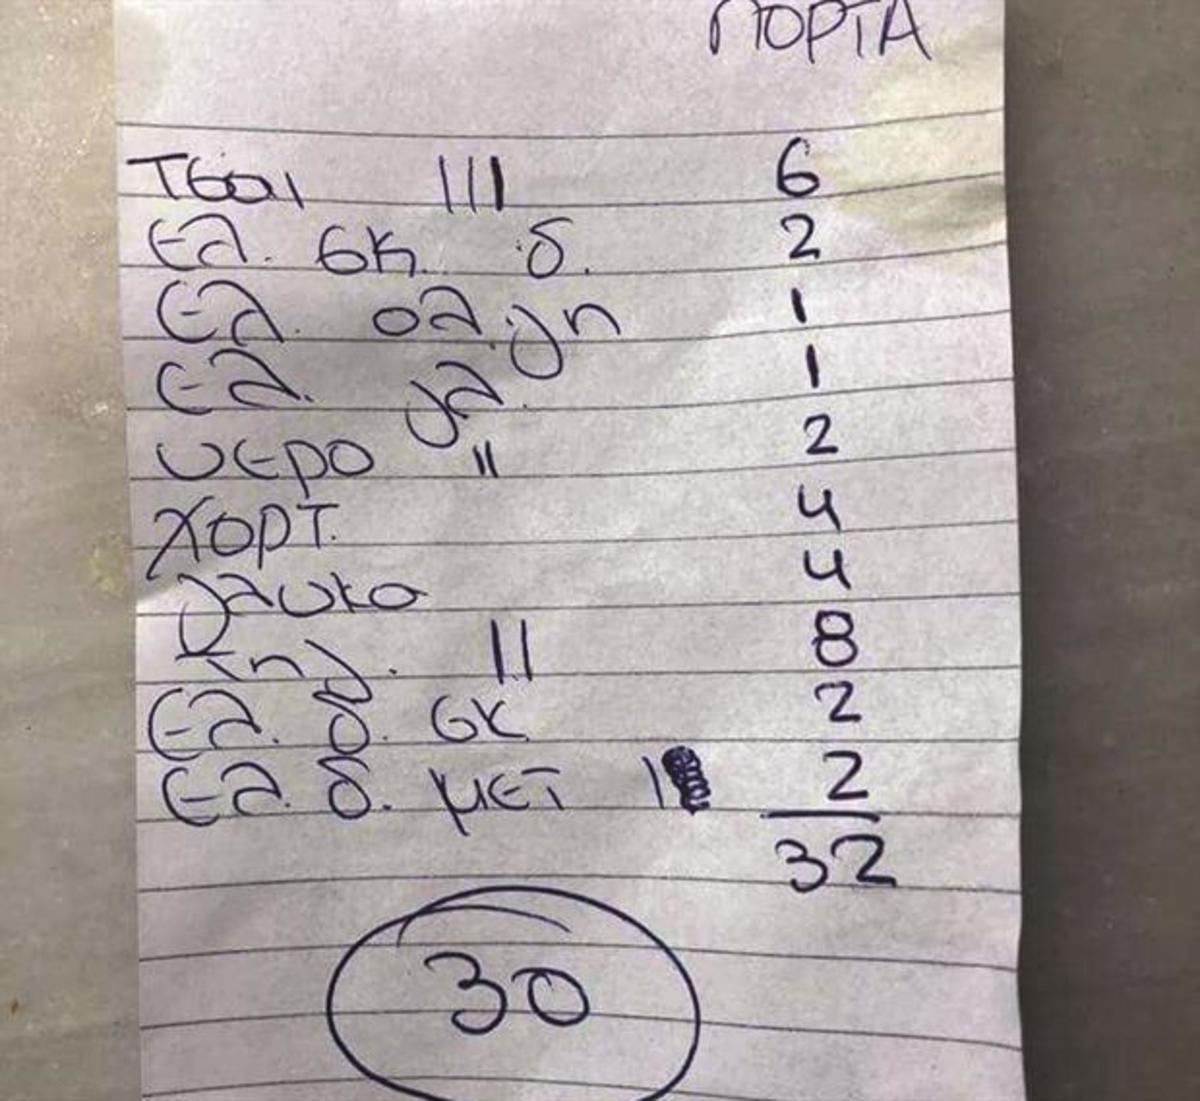 ΠΟΡΤΑ
Τσαι ||| 6
ελ. σκ. δ. 2
ελ. ολ. γη 1
ελ. γλ. 1
νερο || 2
χορτ. 4
γλυκο 4
πηγ. || 8
ελ. δ. σκ 2
ελ. δ. μετ | 2
32
30